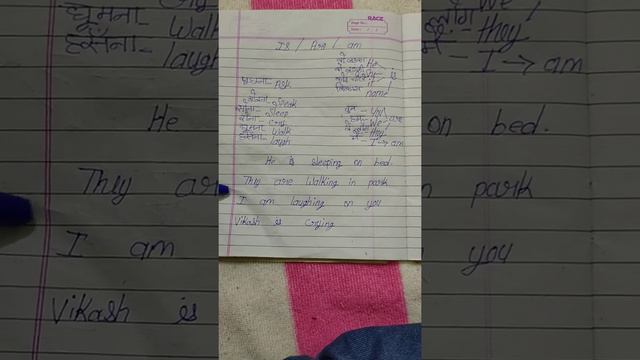 RACE
Page No.:
Date: / /
Is / Are / am
He
is
name
पूछना - Ask
Speak
सोना - Sleep
रोना - Cry
घूमना - Walk
हंसना - laugh
You
हम - We
are
they
मैं - I → am
He is sleeping on bed.
They are walking in park
I am laughing on you
Vikash is crying
घूमना - Walk
हंसना - laugh
He
They are
I am
Vikash is
We
लोग - they
I → am
on bed.
park
you